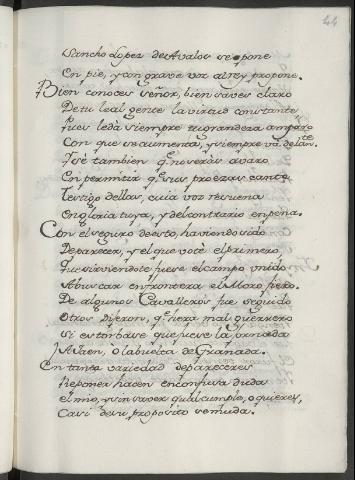 44
Sancho Lopez de Avalos se opone
En pie, y con grave voz al rey propone.
Bien conoces señor, bien saves claro
De tu leal gente la virtud constante,
Pues le da siempre tu grandeza amparo
Con que se aumenta, y siempre va delante.
Y sé tambien q no serás avaro
En permitir q sus proezas cante
Testigo dellas, cuia voz resuena
En gloria tuya, y del contrario en pena.
Con el seguro de esto, haviendo sido
De parecer, y el que voté el primero,
Que sirviendote fuese el campo unido
A buscar en frontera el Moro fiero.
De algunos Cavalleros fue seguido
Otros dijeron, q era mal guerrero
Si estorbase que fuese la jornada
A Jaen, o la buelta de Granada.
En tanta variedad de pareceres
Reponer hacen en confusa duda
el mio, y sin saver qual cumple, o quieres,
Casi de su proposito se muda.